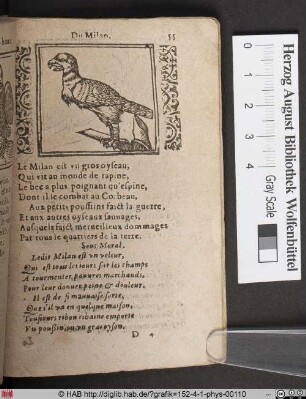 Du Milan. 55
Le Milan est vn gros oyseau,
Qui vit au monde de rapine,
Le bec a plus poignant qu'espine,
Dont il se combat au Corbeau,
Aux petits poussins faict la guerre,
Et aux autres oyseaux sauuages,
Ausquels faict merueilleux dommages
Par tous le quartiers de la terre.
Sens Moral.
Ledit Milan est vn voleur,
Qui est tous les iours sur les champs
A tourmenter, pauures marchands,
Pour leur donner peine & douleur,
Il est de si mauuaise sorte,
Que s'il va en quelque maison,
Tousjours ribon ribaine emporte
Vn poussin, ou vn gras oyson.
D 4
Herzog August Bibliothek Wolfenbüttel
Gray Scale
4
© HAB http://diglib.hab.de/?grafik=152-4-1-phys-00110